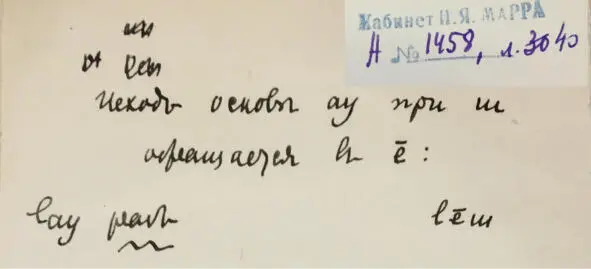 Кабинет Н.Я. МАРРА
А № 1458, л. 3040
Исходъ основы ау при ш
обращается въ ē :
lау lēш